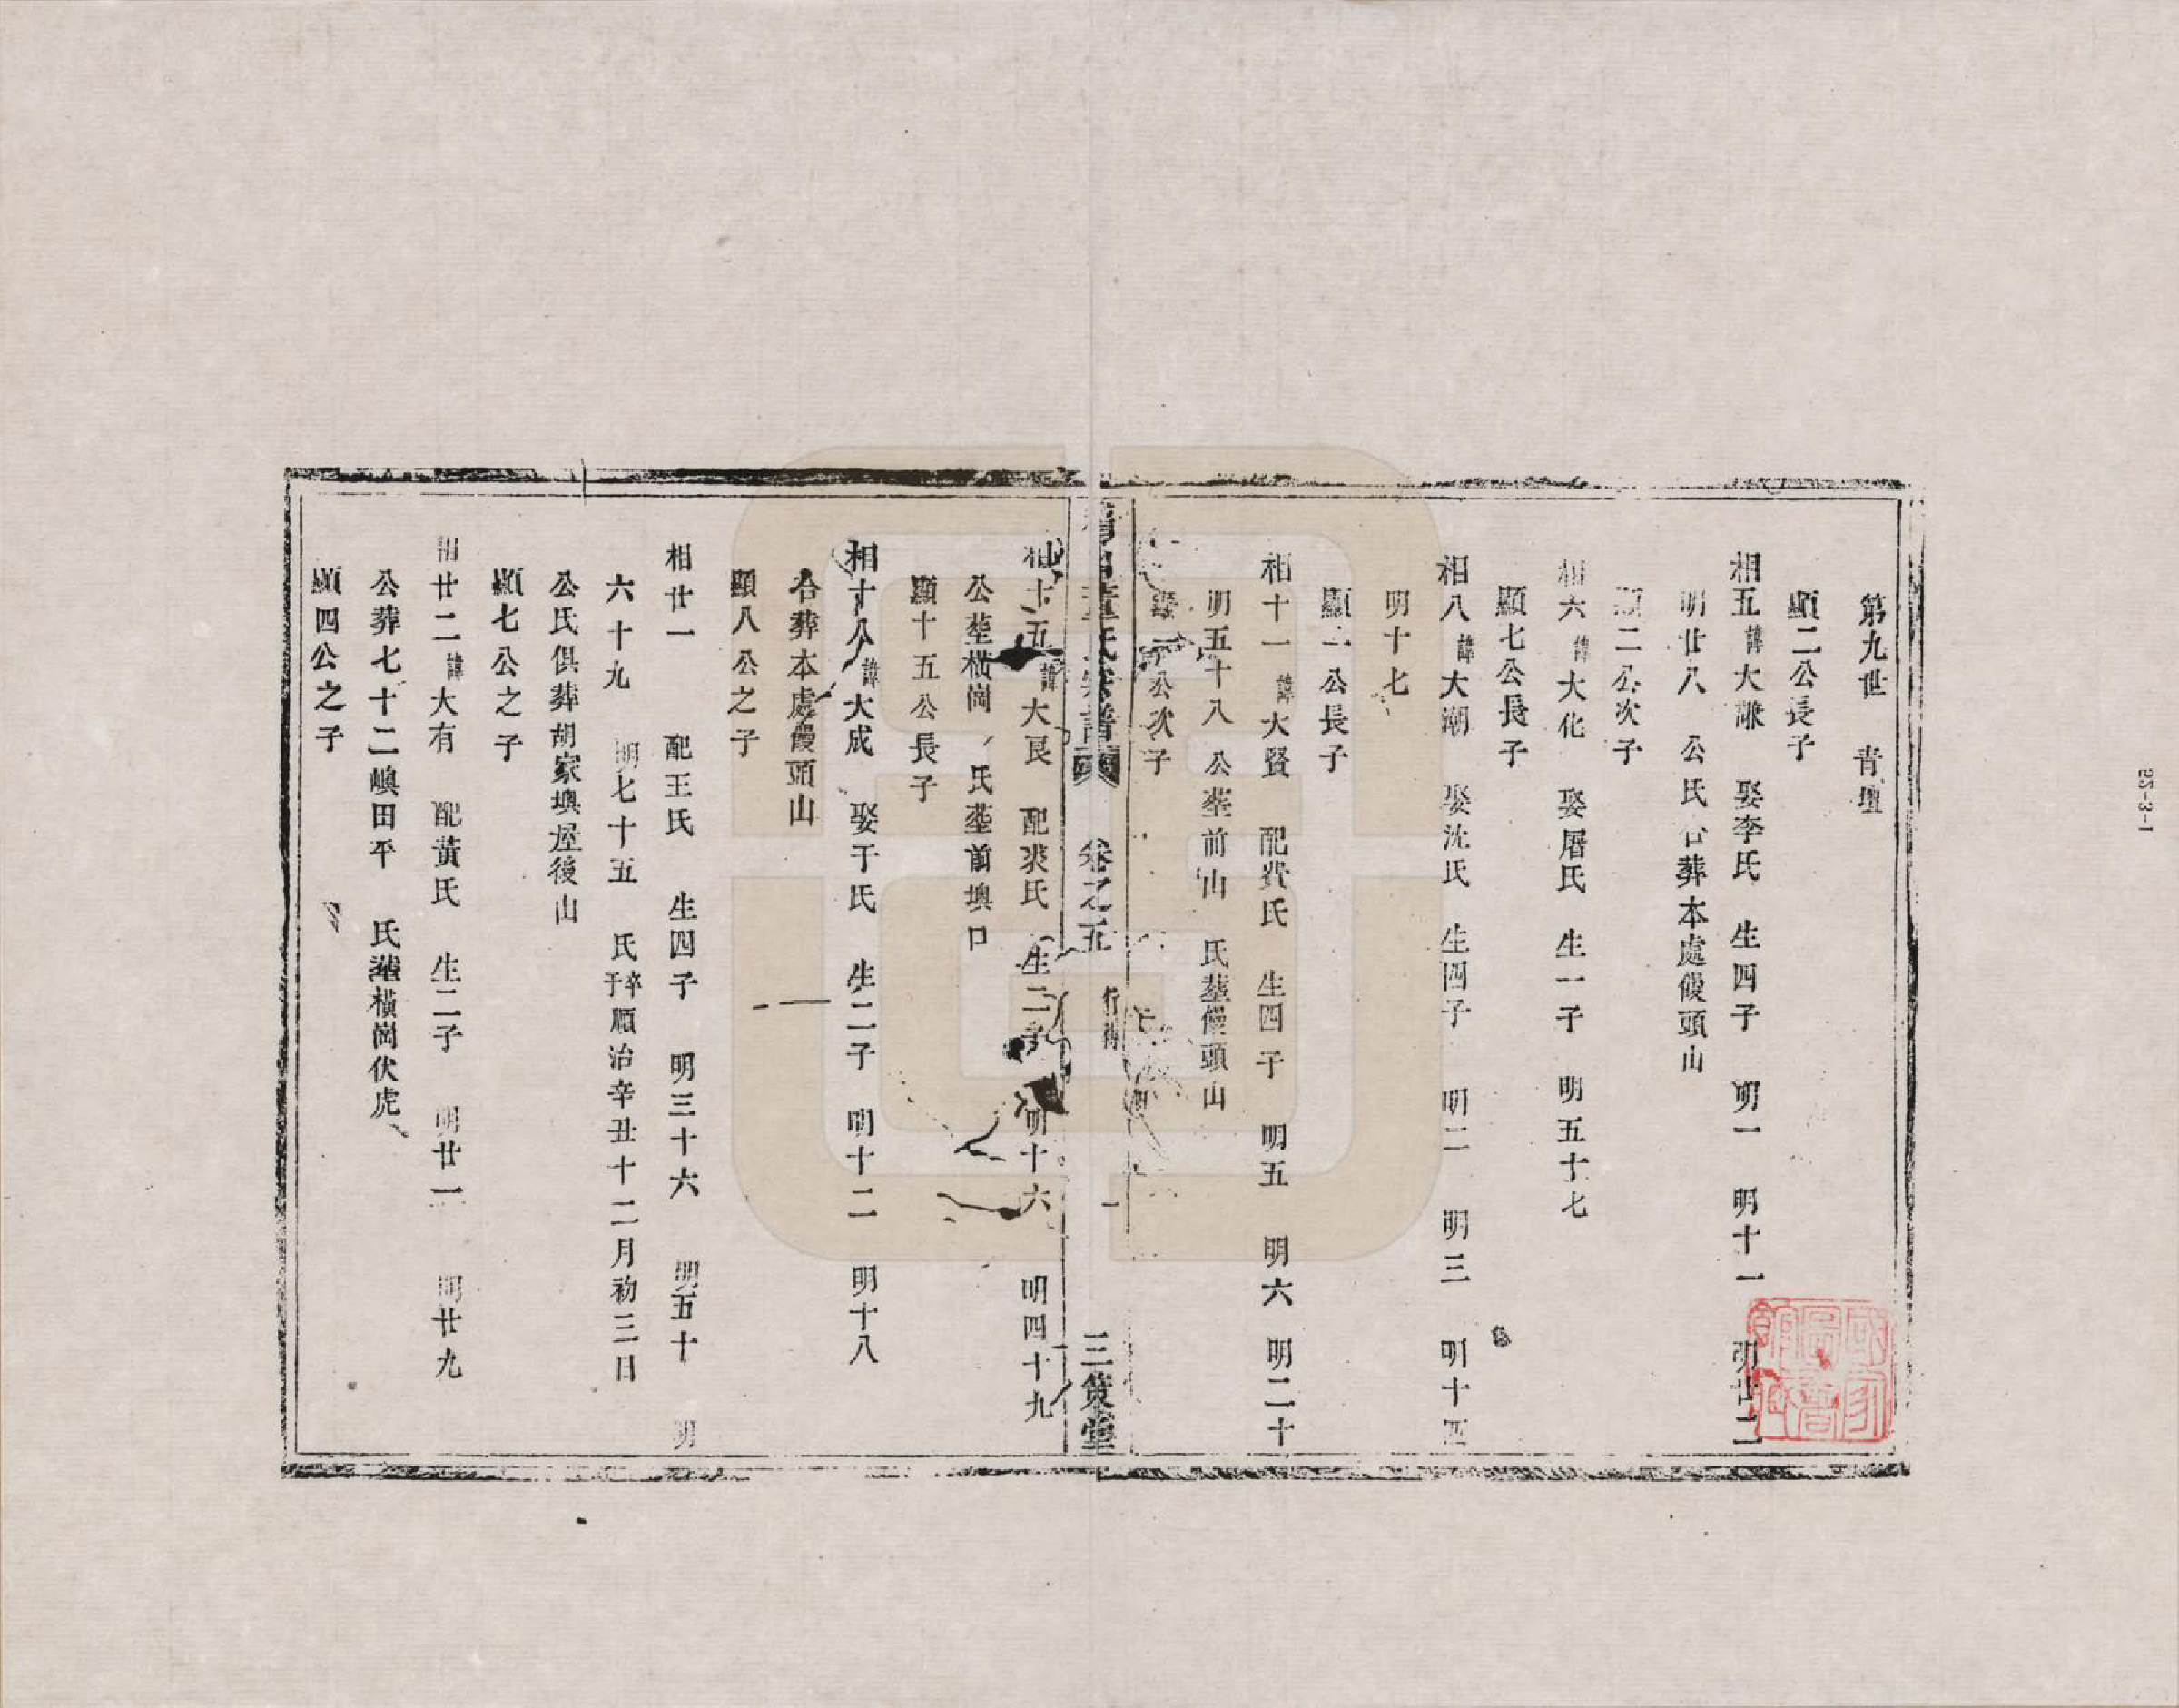 第九世 青壇
顯二公長子
相五諱大謙 娶李氏 生四子 明一 明十一 明廿二
明廿八 公氏合葬本處饅頭山
顯二公次子
相六諱大化 娶屠氏 生一子 明五十七
顯七公長子
相八諱大潮 娶沈氏 生四子 明二 明三 明十四
明十七
顯一公長子
相十一諱大賢 配費氏 生四子 明五 明六 明二十
明五十八 公塟前山 氏塟饅頭山
公次子
董氏宗譜 卷之五 行傳 一 三策堂
相十五諱大艮 配裘氏 生二子 明十六 明四十九
公塟橫崗 氏塟前墺口
顯十五公長子
相十八諱大成 娶于氏 生二子 明十二 明十八
合葬本處饅頭山
顯八公之子
相廿一 配王氏 生四子 明三十六 明五十 明
六十九 明七十五 氏卒于順治辛丑十二月初三日
公氏俱葬胡家墺屋後山
顯七公之子
相廿二諱大有 配黃氏 生二子 明廿一 明廿九
公葬七十二嶴田平 氏塟橫崗伏虎
顯四公之子
PS-3-1